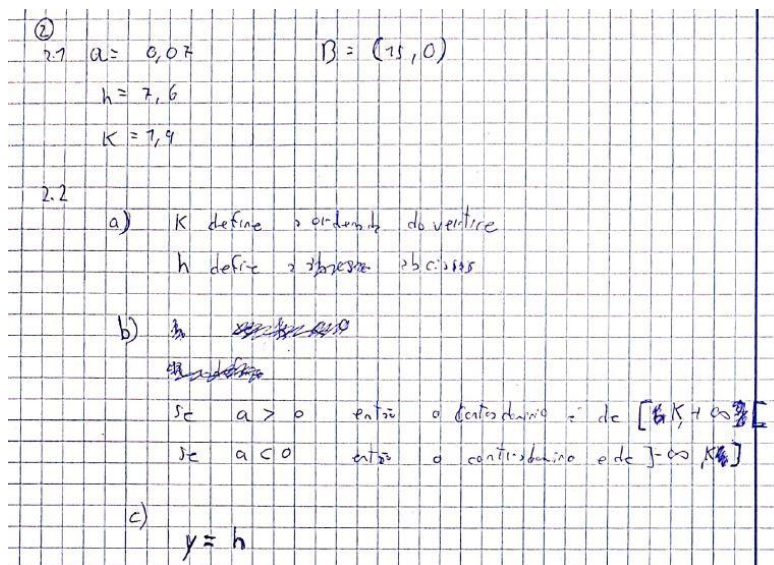 ②
2.1 a= 0,07 B = (15,0)
h = 7,6
K = 1,9
2.2
a) K define a ordenada do vertice
h define a abcissas
b)
se a > 0 então o contradominio é de [K, +∞[
se a < 0 então o contradominio e de ]-∞, K]
c)
y = h